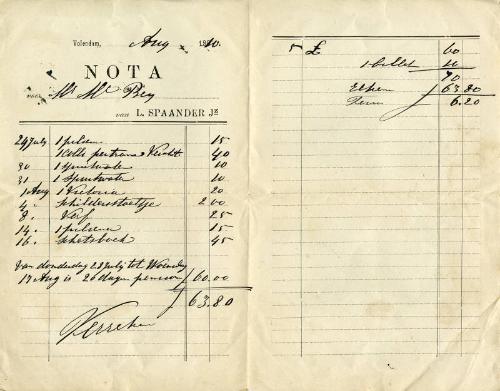 Volendam, Aug 1910.
NOTA
voor Mr Mc Bey
van L. SPAANDER Jr.
29 July 1 pilsen 15
1 Colli 40
30 1 Spuitwater 10
31 1 Spuitwater 10
1 Aug 1 Victoria 20
4 " schildersstoeltje 2 00
8 " Verf 25
14 " 1 pilsen 15
16 " Schetsboek 45
Van donderdag 23 July tot Woensdag
17 Aug is 26 dagen pension 60.00
63.80
5 £ 60
1 billet 10
70
63.80
6.20